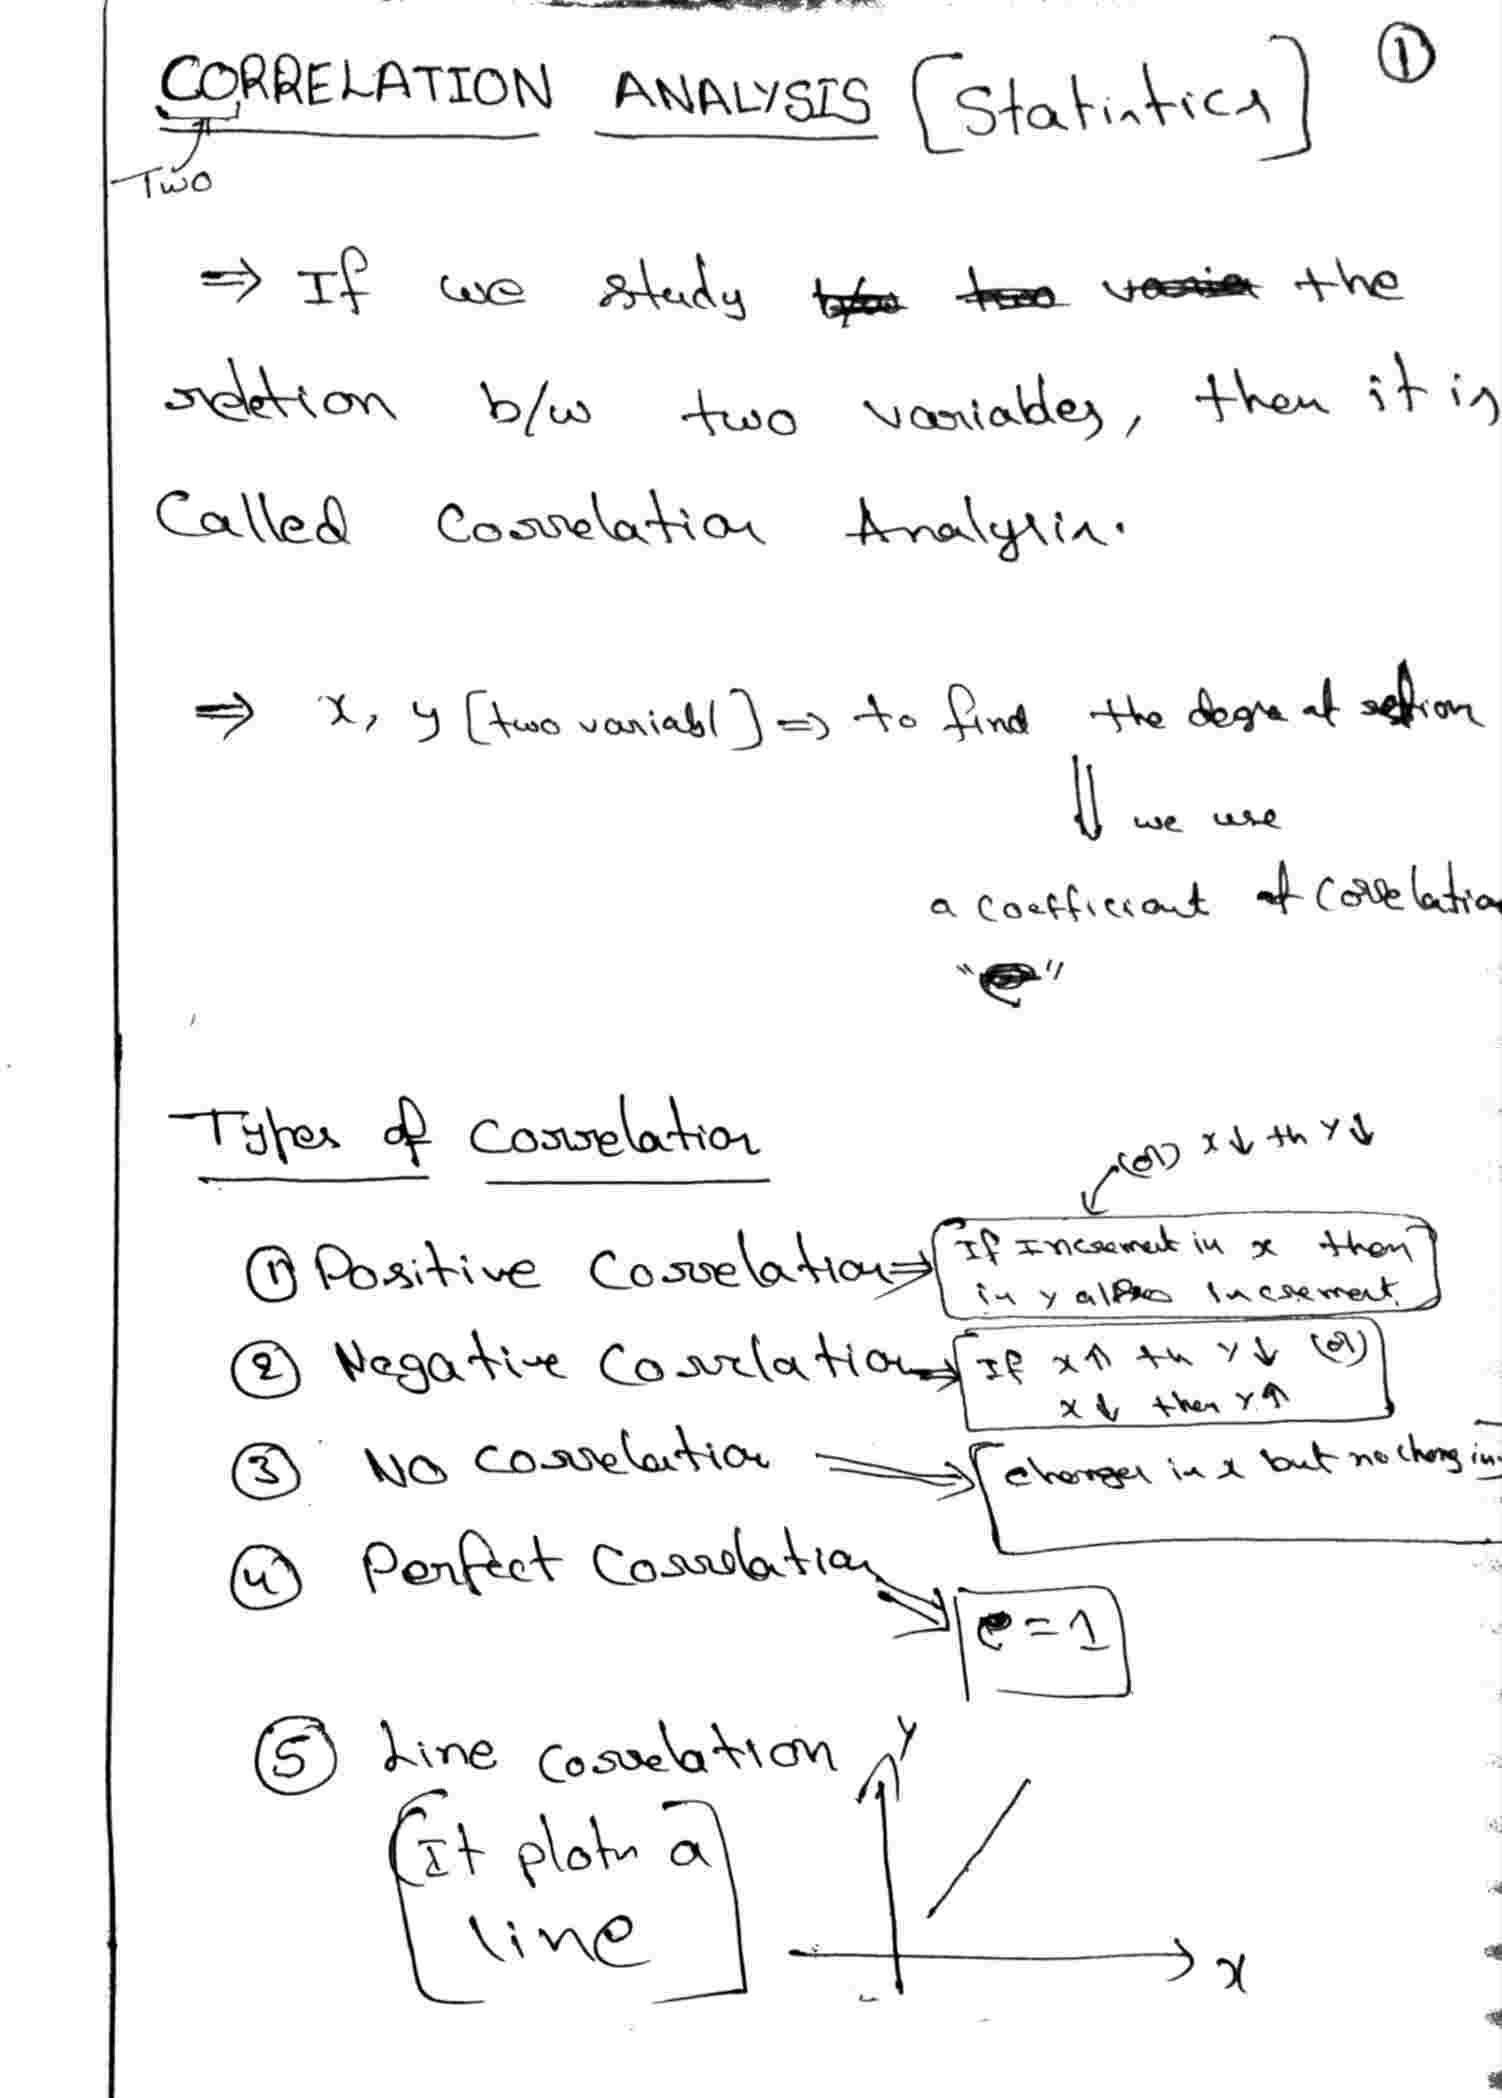 CORRELATION ANALYSIS [Statistics] ①
Two
⇒ If we study the
relation b/w two variables, then it is
Called Correlation Analysis.
⇒ x, y [two variabl] ⇒ to find the degre of relation
⇓ we use
a coefficient of Correlation
Types of Correlation
(or) x↓ th y↓
① Positive Correlation ⇒ If Increment in x then
in y also Increment
② Negative Correlation ⇒ If x↑ th y↓ (or)
x↓ then y↑
③ NO correlation ⇒ changes in x but no chang in
④ Perfect Correlation ⇒ e = 1
⑤ Line correlation
[It plots a
line]
y
x